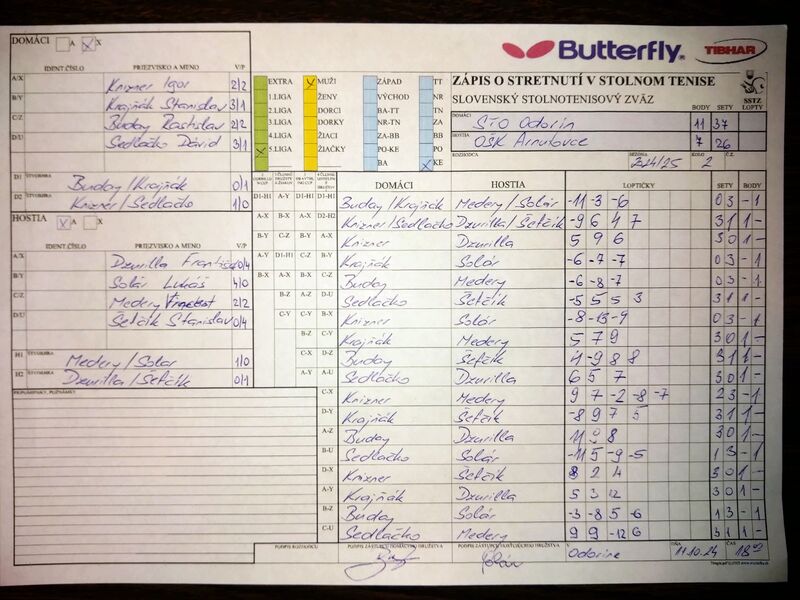 DOMÁCI A X
IDENT.ČÍSLO PRIEZVISKO A MENO V/P
A/X Knizner Igor 2/2
B/Y Krajňák Stanislav 3/1
C/Z Buday Rastislav 2/2
D/U Sedlačko Dávid 3/1
D1 ŠTVORHRA Buday/Krajňák 0/1
D2 ŠTVORHRA Knizner/Sedlačko 1/0
HOSTIA A X
IDENT.ČÍSLO PRIEZVISKO A MENO V/P
A/X Dzurilla František 0/4
B/Y Solár Lukáš 4/0
C/Z Medery Vincent 2/2
D/U Šefčík Stanislav 0/4
H1 ŠTVORHRA Medery/Solár 1/0
H2 ŠTVORHRA Dzurilla/Šefčík 0/1
PRIPOMIENKY, POZNÁMKY
Butterfly TIBHAR
EXTRA MUŽI ZÁPAD TT
1.LIGA ŽENY VÝCHOD NR
2.LIGA DORCI BA-TT TN
3.LIGA DORKY NR-TN ZA
4.LIGA ŽIACI ZA-BB BB
5.LIGA ŽIAČKY PO-KE PO
BA KE
ZÁPIS O STRETNUTÍ V STOLNOM TENISE
SLOVENSKÝ STOLNOTENISOVÝ ZVÄZ SSTZ
BODY SETY LOPTY
DOMÁCI STO Odorín 11 37
HOSTIA OŠK Arnutovce 7 26
ROZHODCA SEZÓNA 2024/25 KOLO 2 Č.Z.
DOMÁCI HOSTIA LOPTIČKY SETY BODY
Buday/Krajňák Medery/Solár -11 -3 -6 0 3 - 1
Knizner/Sedlačko Dzurilla/Šefčík -9 6 4 7 3 1 1 -
Knizner Dzurilla 5 9 6 3 0 1 -
Krajňák Solár -6 -7 -7 0 3 - 1
Buday Medery -6 -8 -7 0 3 - 1
Sedlačko Šefčík -5 5 5 3 3 1 1 -
Knizner Solár -8 -13 -9 0 3 - 1
Krajňák Medery 5 7 9 3 0 1 -
Buday Šefčík 4 -9 8 8 3 1 1 -
Sedlačko Dzurilla 6 5 7 3 0 1 -
C-X Knizner Medery 9 7 -2 -8 -7 2 3 - 1
D-Y Krajňák Šefčík -8 9 7 5 3 1 1 -
A-Z Buday Dzurilla 11 9 8 3 0 1 -
B-U Sedlačko Solár -11 5 -9 -5 1 3 - 1
D-X Knizner Šefčík 8 2 4 3 0 1 -
A-Y Krajňák Dzurilla 5 3 12 3 0 1 -
B-Z Buday Solár -3 -8 5 -6 1 3 - 1
C-U Sedlačko Medery 9 9 -12 6 3 1 1 -
PODPIS ROZHODCU PODPIS ZÁSTUPCU DOMÁCEHO DRUŽSTVA PODPIS ZÁSTUPCU HOSŤUJÚCEHO DRUŽSTVA V Odoríne DŇA 11.10.24 ČAS 18:00